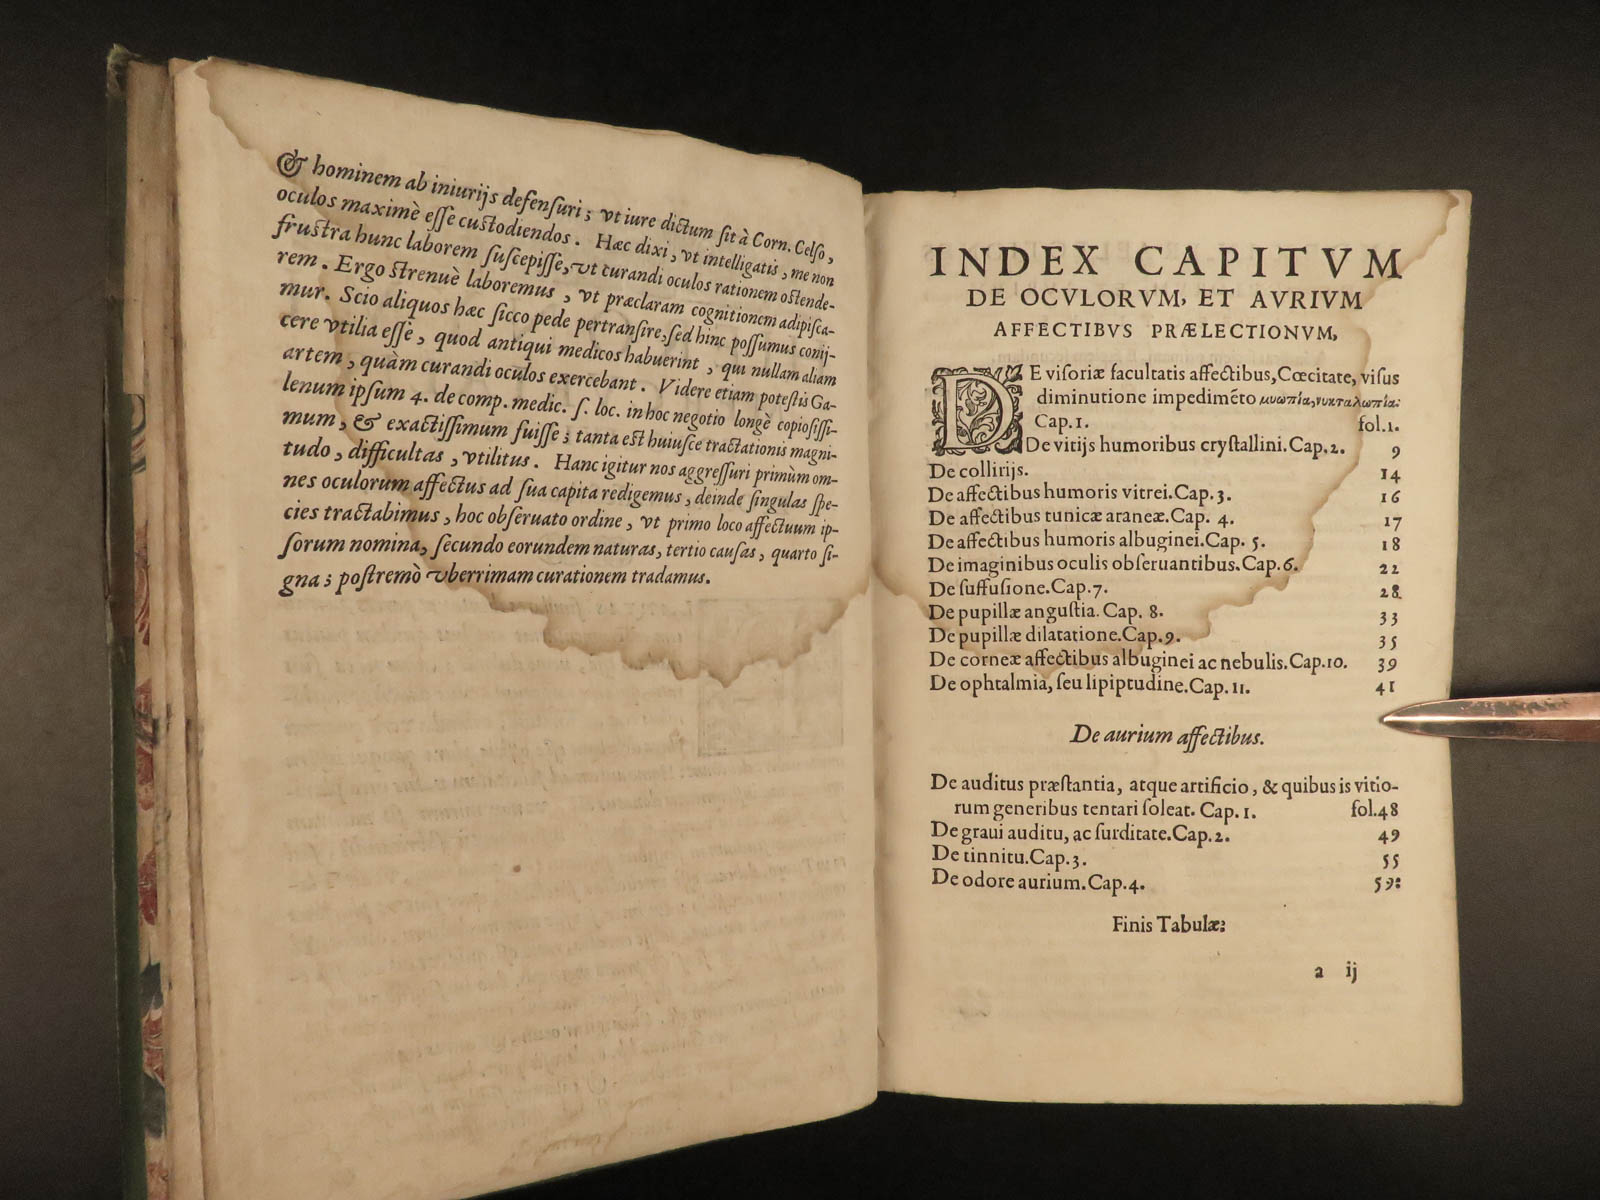 & hominem ab iniurijs defenſuri; vt iure dictum ſit à Corn. Celſo,
oculos maximè eſſe cuſtodiendos. Hæc dixi, vt intelligatis, me non
fruſtra hunc laborem ſuſcepiſſe, vt curandi oculos rationem oſtende-
rem. Ergo ſtrenuè laboremus, vt præclaram cognitionem adipiſca-
mur. Scio aliquos hæc ſicco pede pertranſire, ſed hinc poſſumus conij-
cere vtilia eſſe, quod antiqui medicos habuerint, qui nullam aliam
artem, quàm curandi oculos exercebant. Videre etiam poteſtis Ga-
lenum ipſum 4. de comp. medic. ſ. loc. in hoc negotio longè copioſiſſi-
mum, & exactiſſimum fuiſſe; tanta eſt huiuſce tractationis magni-
tudo, difficultas, vtilitus. Hanc igitur nos aggreſſuri primùm om-
nes oculorum affectus ad ſua capita redigemus, deinde ſingulas ſpe-
cies tractabimus, hoc obſeruato ordine, vt primo loco affectuum ip-
ſorum nomina, ſecundo eorundem naturas, tertio cauſas, quarto ſi-
gna; poſtremò vberrimam curationem tradamus.
INDEX CAPITVM
DE OCVLORVM, ET AVRIVM
AFFECTIBVS PRÆLECTIONVM,
DE viſoriæ facultatis affectibus, Cœcitate, viſus
diminutione impedimẽto μυωπία, νυκταλωπία:
Cap. 1. fol. 1.
De vitijs humoribus cryſtallini. Cap. 2. 9
De collirijs. 14
De affectibus humoris vitrei. Cap. 3. 16
De affectibus tunicæ araneæ. Cap. 4. 17
De affectibus humoris albuginei. Cap. 5. 18
De imaginibus oculis obſeruantibus. Cap. 6. 22
De ſuffuſione. Cap. 7. 28
De pupillæ anguſtia. Cap. 8. 33
De pupillæ dilatatione. Cap. 9. 35
De corneæ affectibus albuginei ac nebulis. Cap. 10. 39
De ophtalmia, ſeu lipiptudine. Cap. 11. 41
De aurium affectibus.
De auditus præſtantia, atque artificio, & quibus is vitio-
rum generibus tentari ſoleat. Cap. 1. fol. 48
De graui auditu, ac ſurditate. Cap. 2. 49
De tinnitu. Cap. 3. 55
De odore aurium. Cap. 4. 59:
Finis Tabulæ:
a ij